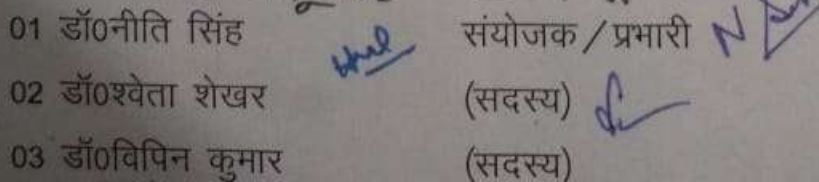 01 डॉ0नीति सिंह संयोजक / प्रभारी
02 डॉ0श्वेता शेखर (सदस्य)
03 डॉ0विपिन कुमार (सदस्य)